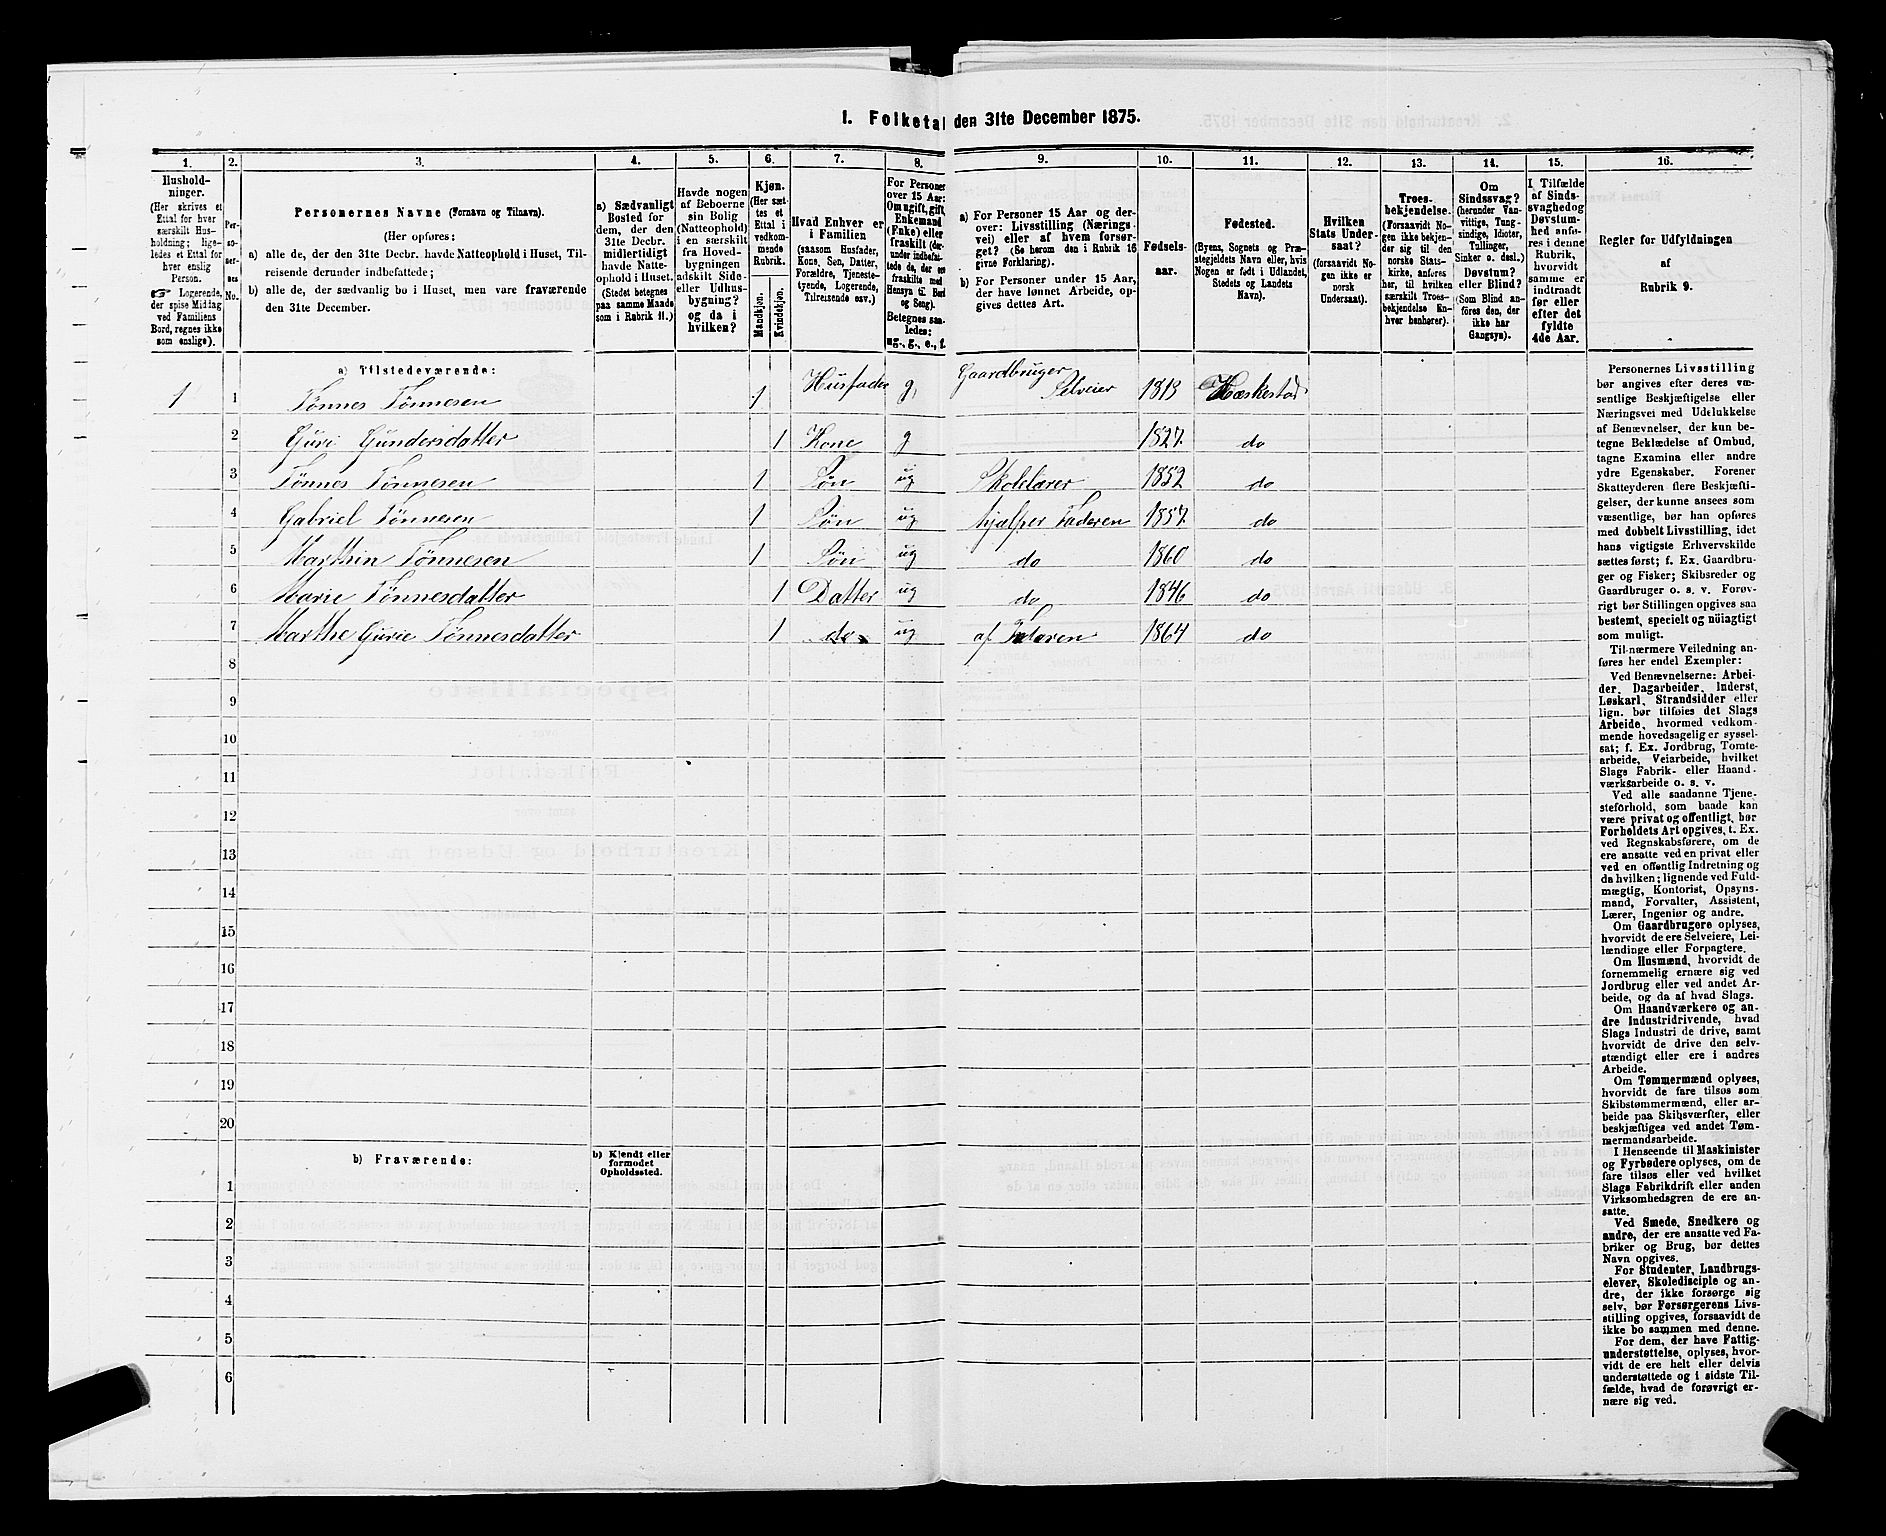 1. Folketal den 31te December 1875.
1.
2.
3.
4.
5.
6.
7.
8.
9.
10.
11.
12.
13.
14.
15.
16.
Hushold-
ninger.
(Her skrives et
Ettal for hver
særskilt Hus-
holdning; lige-
ledes et Ettal for
hver enslig
Person.
☞ Logerende,
der spise Middag
ved Familiens
Bord, regnes ikke
som enslige).
Per-
so-
ner-
nes
No.
Personernes Navne (Fornavn og Tilnavn).
(Her opføres:
a) alle de, der den 31te Decbr. havde Natteophold i Huset, Til-
reisende derunder indbefattede;
b) alle de, der sædvanlig bo i Huset, men vare fraværende
den 31te December.
a) Sædvanligt
Bosted for
dem, der den
31te Decbr.
midlertidigt
havde Natte-
ophold i Huset.
(Stedet betegnes
paa samme Maade
som i Rubrik 11.)
Havde nogen
af Beboerne
sin Bolig
(Natteophold)
i en særskilt
fra Hoved-
bygningen
adskilt Side-
eller Udhus-
bygning?
og da i
hvilken?
Kjøn.
(Her sæt-
tes et
Ettal i
vedkom-
mende
Rubrik.
Mandkjøn.
Kvindekjøn.
Hvad Enhver er
i Familien
(saasom Husfader,
Kone, Søn, Datter,
Forældre, Tjeneste-
tyende, Logerende,
Tilreisende osv.)
For Personer
over 15 Aar:
Om ugift, gift,
Enkemand
(Enke) eller
fraskilt (der-
under indbefat-
tede de, der ere
fraskilte med
Hensyn til Bord
og Seng).
Betegnes saa-
ledes:
ug., g., e., f.
a) For Personer 15 Aar og der-
over: Livsstilling (Nærings-
vei) eller af hvem forsør-
get? (Se herom den i Rubrik 16
givne Forklaring).
b) For Personer under 15 Aar,
der have lønnet Arbeide, op-
gives dettes Art.
Fødsels-
aar.
Fødested.
(Byens, Sognets og Præ-
stegjeldets Navn eller, hvis
Nogen er født i Udlandet,
Stedets og Landets
Navn).
Hvilken
Stats Under-
saat?
(forsaavidt No-
gen ikke er
norsk
Undersaat).
Troes-
bekjendelse.
(Forsaavidt No-
gen ikke bekjen-
der sig til den
norske Stats-
kirke, anføres
her, til hvilken
særskilt Troes-
bekjendelse En-
hver henhører).
Om
Sindssvag?
(herunder Van-
vittige, Tung-
sindige, Idioter,
Tullinger,
Sinker o. desl.)
Døvstum?
eller Blind?
(Som Blind an-
føres den, der
ikke har
Gangsyn).
I Tilfælde
af Sinds-
svaghed og
Døvstum-
hed anfø-
res i denne
Rubrik,
hvorvidt
samme er
indtraadt
før eller
efter det
fyldte
4de Aar.
Regler for Udfyldningen
af
Rubrik 9.
a) Tilstedeværende:
1 1 Tønnes Tønnesen 1 Husfader g, Gaardbruger Selveier 1813 Hæskestad
2 Guri Gundersdatter 1 Kone g 1827. do
3 Tønnes Tønnesen 1 Søn ug Skolelærer 1852 do
4 Gabriel Tønnesen 1 Søn ug hjælper Faderen 1857. do
5 Marthin Tønnesen 1 Søn ug do 1860 do
6 Marie Tønnesdatter 1 Datter ug do 1846 do
7 Marthe Gurie Tønnesdatter 1 do ug af Faderen 1864 do
8
9
10
11
12
13
14
15
16
17
18
19
20
b) Fraværende:
b) Kjendt eller
formodet
Opholdssted.
1
2
3
4
5
6
Personernes Livsstilling
bør angives efter deres væ-
sentlige Beskjæftigelse eller
Næringsvei med Udelukkelse
af Benævnelser, der kun be-
tegne Beklædelse af Ombud,
tagne Examina eller andre
ydre Egenskaber. Forener
Skatteyderen flere Beskjæfti-
gelser, der kunne ansees som
væsentlige, bør han opføres
med dobbelt Livsstilling, idet
hans vigtigste Erhvervskilde
sættes først; f. Ex. Gaardbru-
ger og Fisker; Skibsreder og
Gaardbruger o. s. v. Forøv-
rigt bør Stillingen opgives saa
bestemt, specielt og nøiagtigt
som muligt.
Til nærmere Veiledning an-
føres her endel Exempler:
Ved Benævnelserne: Arbei-
der, Dagarbeider, Inderst,
Løskarl, Strandsidder eller
lign. bør tilføies det Slags
Arbeide, hvormed vedkom-
mende hovedsagelig er syssel-
sat; f. Ex. Jordbrug, Tomte-
arbeide, Veiarbeide, hvilket
Slags Fabrik- eller Haand-
værksarbeide o. s. v.
Ved alle saadanne Tjene-
steforhold, som baade kan
være privat og offentligt, bør
Forholdets Art opgives, t. Ex.
ved Regnskabsførere, om de
ere ansatte ved en privat eller
ved en offentlig Indretning og
da hvilken; lignende ved Fuld-
mægtig, Kontorist, Opsyns-
mand, Forvalter, Assistent,
Lærer, Ingeniør og andre.
Om Gaardbrugere oplyses,
hvorvidt de ere Selveiere, Lei-
lændinge eller Forpagtere.
Om Husmænd, hvorvidt de
fornemmelig ernære sig ved
Jordbrug eller ved andet Ar-
beide, og da af hvad Slags.
Om Haandværkere og an-
dre Industridrivende, hvad
Slags Industri de drive, samt
hvorvidt de drive den selv-
stændigt eller ere i andres
Arbeide.
Om Tømmermænd oplyses,
hvorvidt de fare tilsøs som
Skibstømmermænd, eller ar-
beide paa Skibsværfter, eller
beskjæftiges ved andet Tøm-
mermandsarbeide.
I Henseende til Maskinister
og Fyrbødere oplyses, om de
fare tilsøs eller ved hvilket
Slags Fabrikdrift eller anden
Virksomhedsgren de ere an-
satte.
Ved Smede, Snedkere og
andre, der ere ansatte ved Fa-
briker og Brug, bør dettes
Navn opgives.
For Studenter, Landbrugs-
elever, Skoledisciple og an-
dre, der ikke forsørge sig
selv, bør Forsørgerens Livs-
stilling opgives, forsaavidt de
ikke bo sammen med denne.
For dem, der have Fattig-
understøttelse, oplyses, hvor-
vidt de ere helt eller delvis
understøttede og i sidste Til-
fælde, hvad de forøvrigt er-
nære sig ved.